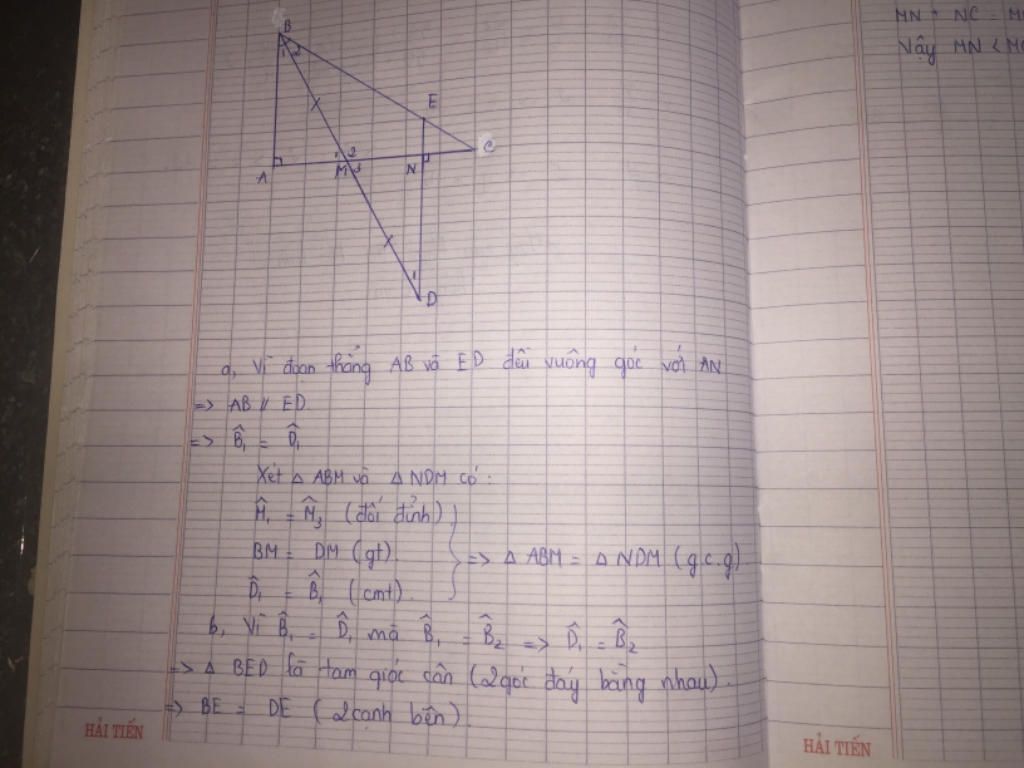 B
1 2
E
C
1 2
A
M 3
N
1
D
a, Vì đoạn thẳng AB và ED đều vuông góc với AN
=> AB // ED
=> B̂₁ = D̂₁
Xét △ ABM và △ NDM có:
M̂₁ = M̂₃ (đối đỉnh)
BM = DM (gt)
=> △ ABM = △ NDM (g.c.g)
D̂₁ = B̂₁ (cmt)
b, Vì B̂₁ = D̂₁ mà B̂₁ = B̂₂ => D̂₁ = B̂₂
=> △ BED là tam giác cân (2 góc đáy bằng nhau).
=> BE = DE (2 cạnh bên)
HẢI TIẾN
MN + NC =
Vậy MN <
HẢI TIẾN